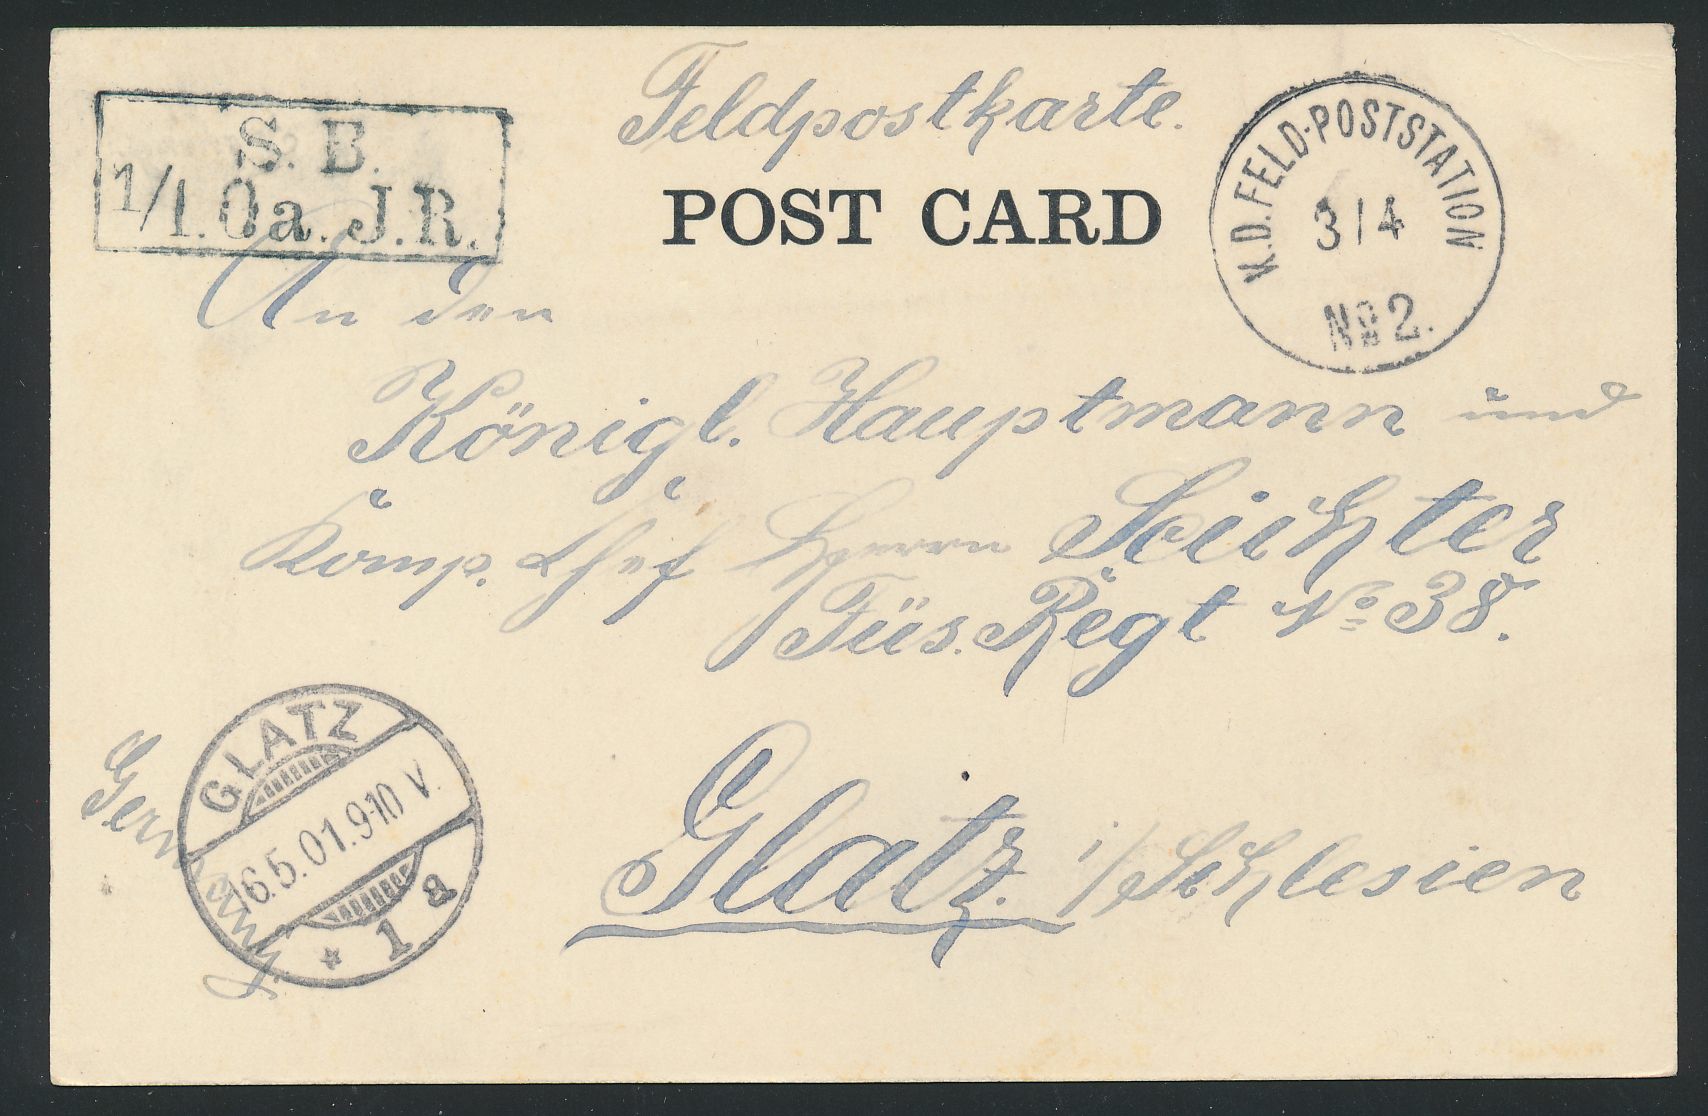 Feldpostkarte.
POST CARD
S. B.
1/1. Oa. J. R.
K.D. FELD-POSTSTATION
3/4
No 2.
An den
Königl. Hauptmann und
Komp. Chef Herrn
Füs. Regt No 38.
Glatz i/Schlesien
Germany.
GLATZ
16.5.01. 9-10 V.
* 1 a